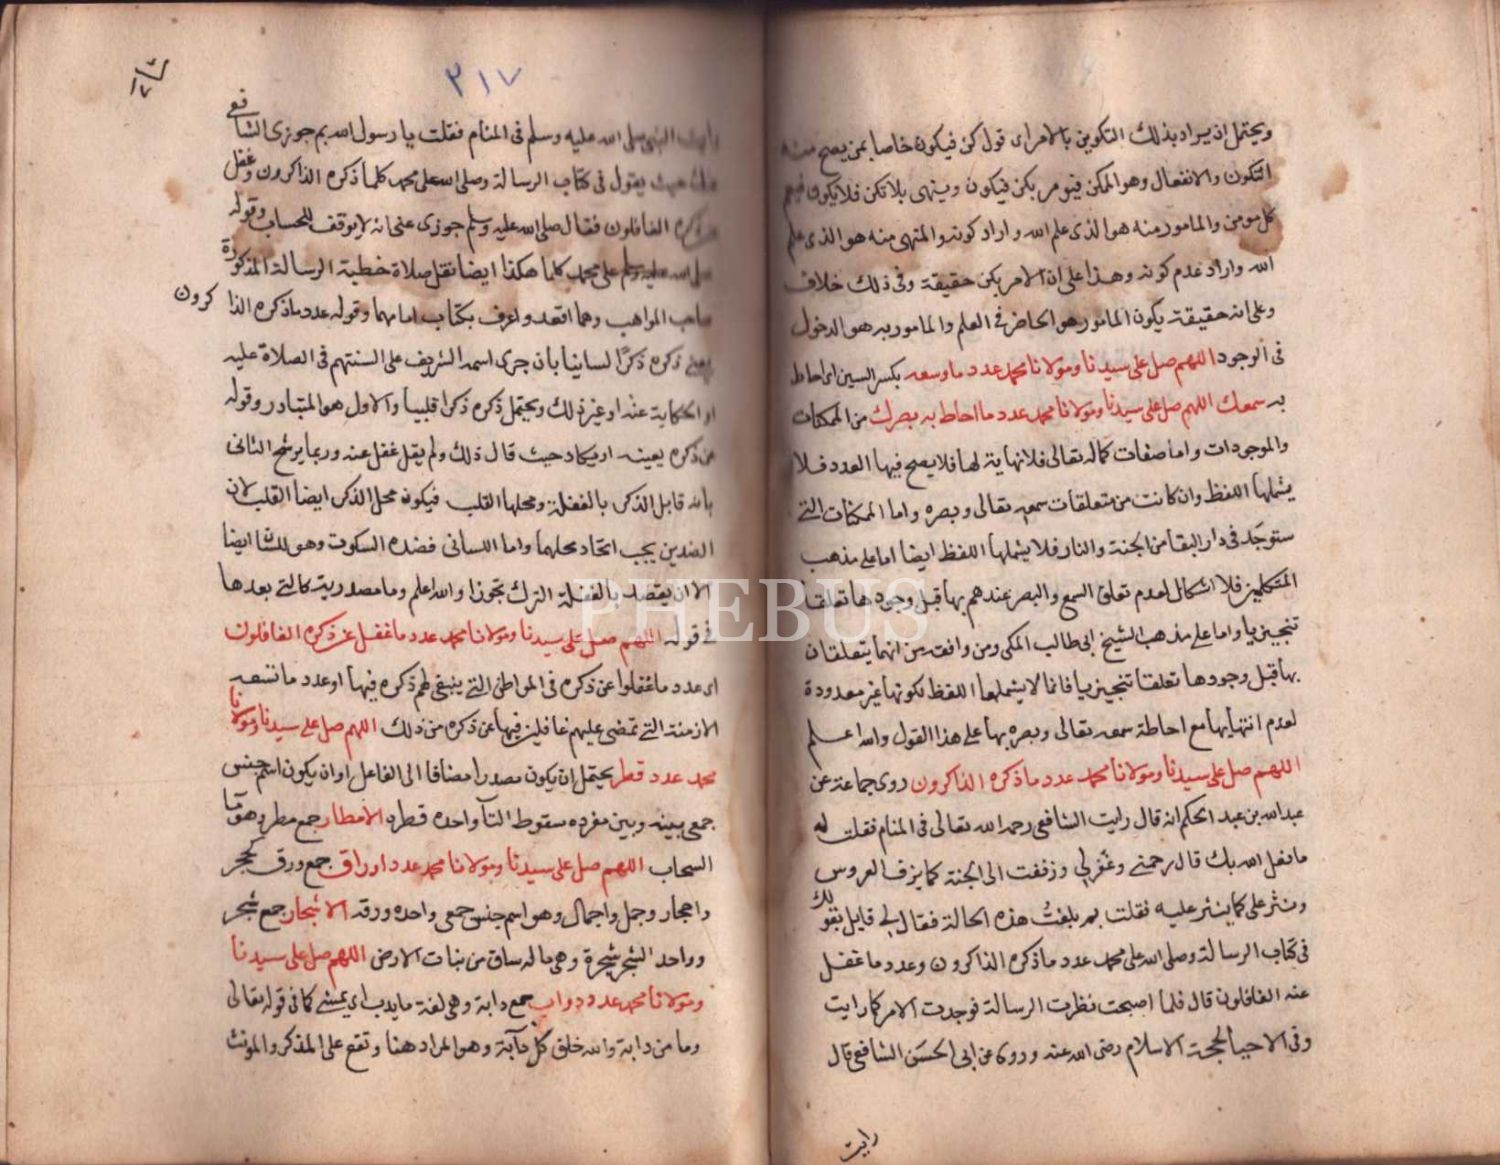 ويحتمل ان يراد بذلك التكوين بالامر اى قول كن فيكون خاصا بمن يصح منه
التكون والانفعال وهو الممكن فيومر بكن فيكون وينهى بلا تكن فلا يكون فيهم
كل مومن والمامور منه هو الذى علم الله واراد كونه والمنهى منه هو الذى علم
الله واراد عدم كونه وهذا على ان الامر بكن حقيقة وفى ذلك خلاف
وعلى انه حقيقة يكون المامور هو الحاضر فى العلم والمامور به هو الدخول
فى الوجود اللهم صل على سيدنا ومولانا محمد عدد ما وسعه بكسر السين اى احاط
به سمعك اللهم صل على سيدنا ومولانا محمد عدد ما احاط به بصرك من الممكنات
والموجودات واما صفات كماله تعالى فلا نهاية لها فلا يصح فيها العدد فلا
يشملها اللفظ وان كانت من متعلقات سمعه تعالى وبصره واما الممكنات التى
ستوجد فى دار البقا من الجنة والنار فلا يشملها اللفظ ايضا اما على مذهب
المتكلمين فلا اشكال لعدم تعلق السمع والبصر عندهم بها قبل وجودها تعلقا
تنجيزيا واما على مذهب الشيخ ابى طالب المكى ومن وافقه من انهما يتعلقان
بها قبل وجودها تعلقا تنجيزيا فانما لا يشملها اللفظ لكونها غير معدودة
لعدم انتهايها مع احاطة سمعه تعالى وبصره بها على هذا القول والله اعلم
اللهم صل على سيدنا ومولانا محمد عدد ما ذكره الذاكرون روى جماعة عن
عبد الله بن عبد الحكم انه قال رايت الشافعى رحمه الله تعالى فى المنام فقلت له
ما فعل الله بك قال رحمنى وغفر لى وزففت الى الجنة كما يزف العروس
ونثر على كما ينثر عليه فقلت بم بلغت هذه الحالة فقال لى قايل بقولك
فى كتاب الرسالة وصلى الله على محمد عدد ما ذكره الذاكرون وعدد ما غفل
عنه الغافلون قال فلما اصبحت نظرت الرسالة فوجدت الامر كما رايت
وفى الاحيا لحجة الاسلام رضى الله عنه وروى عن ابى الحسن الشافعى قال
رايت
٢١٧
رايت النبى صلى الله عليه وسلم فى المنام فقلت يا رسول الله بم جوزى الشافعى
عنك حيث يقول فى كتاب الرسالة وصلى الله على محمد كلما ذكره الذاكرون وغفل
عن ذكره الغافلون فقال صلى الله عليه وسلم جوزى عنى انه لا يوقف للحساب وقوله
صلى الله عليه وسلم على محمد كلما هكذا ايضا نقل صلاة خطبة الرسالة المذكورة
صاحب المواهب وهما اقعد واعرف بكتاب امامهما وقوله عدد ما ذكره الذاكرون
يعنى ذكره ذكرا لسانيا بان جرى اسمه الشريف على السنتهم فى الصلاة عليه
او الحكاية عنه او غير ذلك ويحتمل ذكره ذكرا قلبيا والاول هو المتبادر وقوله
عن ذكره يعينه او يكاد حيث قال ذلك ولم يقل غفل عنه وربما يرشح الثانى
بانه قابل الذكر بالغفلة ومحلها القلب فيكون محل الذكر ايضا القلب لان
الضدين يجب اتحاد محلهما واما اللسانى فضده السكوت وهو للشا ايضا
الا ان يقصد بالغفلة الترك تجوزا والله اعلم وما مصدرية كالتى بعدها
فى قوله اللهم صل على سيدنا ومولانا محمد عدد ما غفل عن ذكره الغافلون
اى عدد ما غفلوا عن ذكره فى المواطن التى ينبغى لهم ذكره فيها او عدد ما تسعه
الازمنة التى تمضى عليهم غافلين فيها عن ذكره من ذلك اللهم صل على سيدنا ومولانا
محمد عدد قطر يحتمل ان يكون مصدرا مضافا الى الفاعل او ان يكون اسم جنس
جمعى بينه وبين مفرده سقوط التآ واحده قطره الامطار جمع مطر وهو مآ
السحاب اللهم صل على سيدنا ومولانا محمد عدد اوراق جمع ورق كحجر
واحجار وجمل واجمال وهو اسم جنس جمعى واحده ورقه الاشجار جمع شجر
وواحد الشجر شجرة وهى ما له ساق من نبات الارض اللهم صل على سيدنا
ومولانا محمد عدد دواب جمع دابة وهى لغة ما يدب اى يمشى كما فى قوله تعالى
وما من دابة والله خلق كل دآبة وهو المراد هنا وتقع على المذكر والمونث
PHEBUS